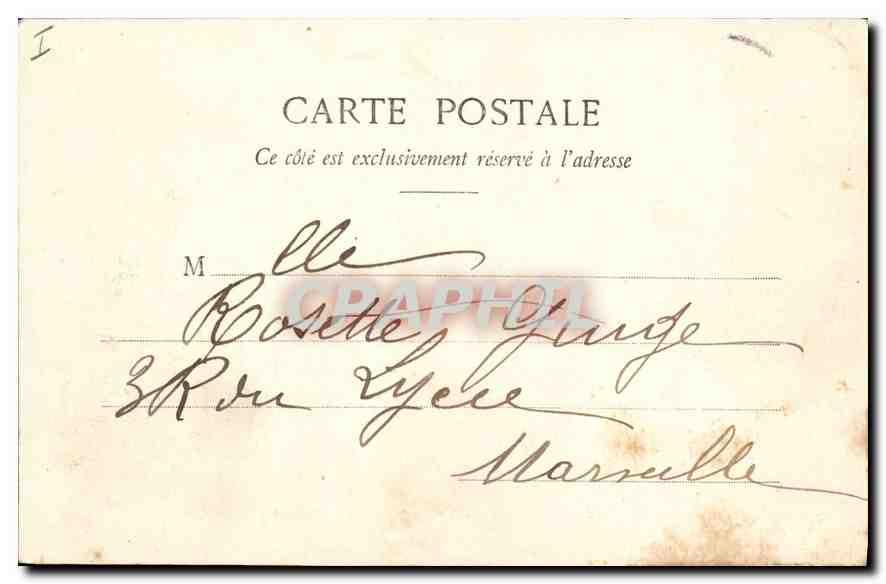 I
CARTE POSTALE
Ce côté est exclusivement réservé à l'adresse
Mlle
CPAPHIL
Rosette
3 R du Lycee
Marseille